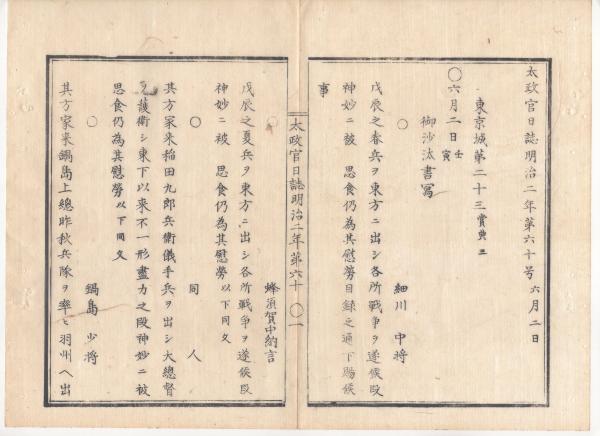 太政官日誌明治二年第六十号 六月二日
東京城第二十三 賞典 三
○六月二日 壬寅
御沙汰書写
○
細川 中将
戊辰之春兵ヲ東方ニ出シ各所戦争ヲ遂候段
神妙ニ被 思食仍為其慰労目録之通下賜候
事
太政官日誌明治二年第六十 ○一
○
蜂須賀中納言
戊辰之夏兵ヲ東方ニ出シ各所戦争ヲ遂候段
神妙ニ被 思食仍為其慰労 以下同文
○
同 人
其方家来稲田九郎兵衛儀手兵ヲ出シ大総督
ヲ護衛シ東下以来不一形尽力之段神妙ニ被
思食仍為其慰労 以下同文
○
鍋島 少将
其方家来鍋島上総昨秋兵隊ヲ率ヒ羽州ヘ出